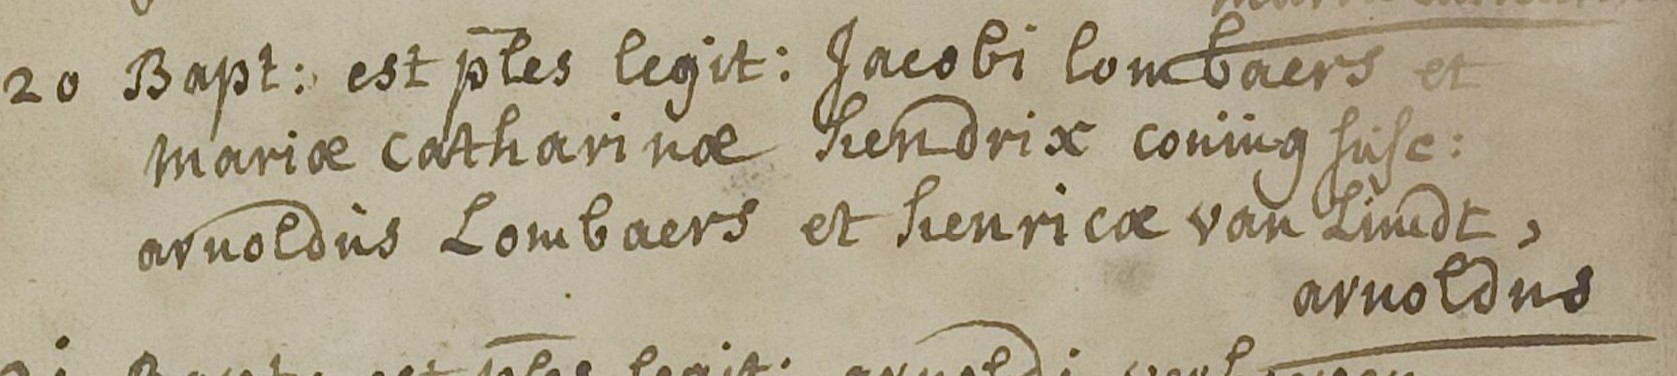 20 Bapt: est ples legit: Jacobi lombaers et
mariæ catharinæ hendrix coniug susc:
arnoldus Lombaers et henricæ van Lindt,
arnoldus
Bapt: est ples legit: arnoldi